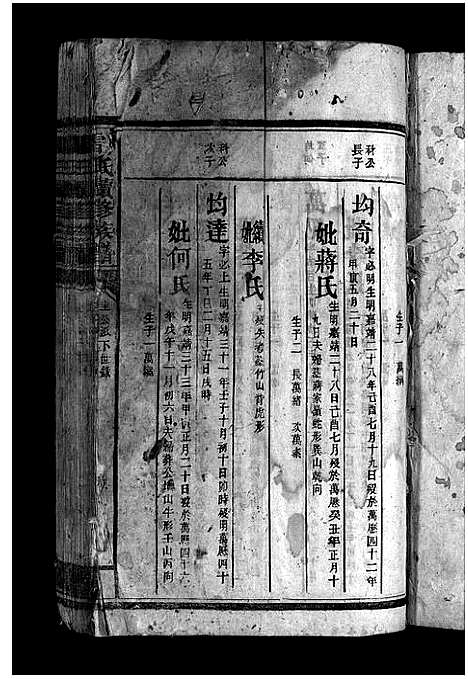 生子一 萬
科公長子
均奇 字必明生明嘉靖二十八年己酉七月十九日歿於萬厯四十二年
甲寅五月二十日
妣蔣氏 生明嘉靖二十八日己酉七月歿於萬厯癸丑年正月十
九日夫婦墓蔣家嶺蛇形巽山乾向
生子二 長萬緒 次萬
繼妣李氏 歿失考葬竹山背虎形
科公次子
均達 字必上生明嘉靖三十一年壬子十月初十日卯時歿明萬厯四十
五年丁巳二月十五日戌時
妣何氏 生明嘉靖三十三年甲寅正月二十日歿於萬厯四十六
年戊午十一月初六日夫婦葬公山牛形壬山丙向
生子一 萬
氏續修族譜
公派下世錄